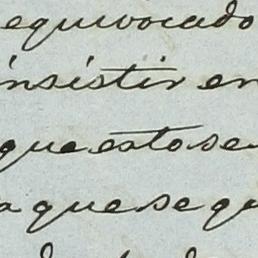 equivocado
insistir en
que esto se
a que se qu